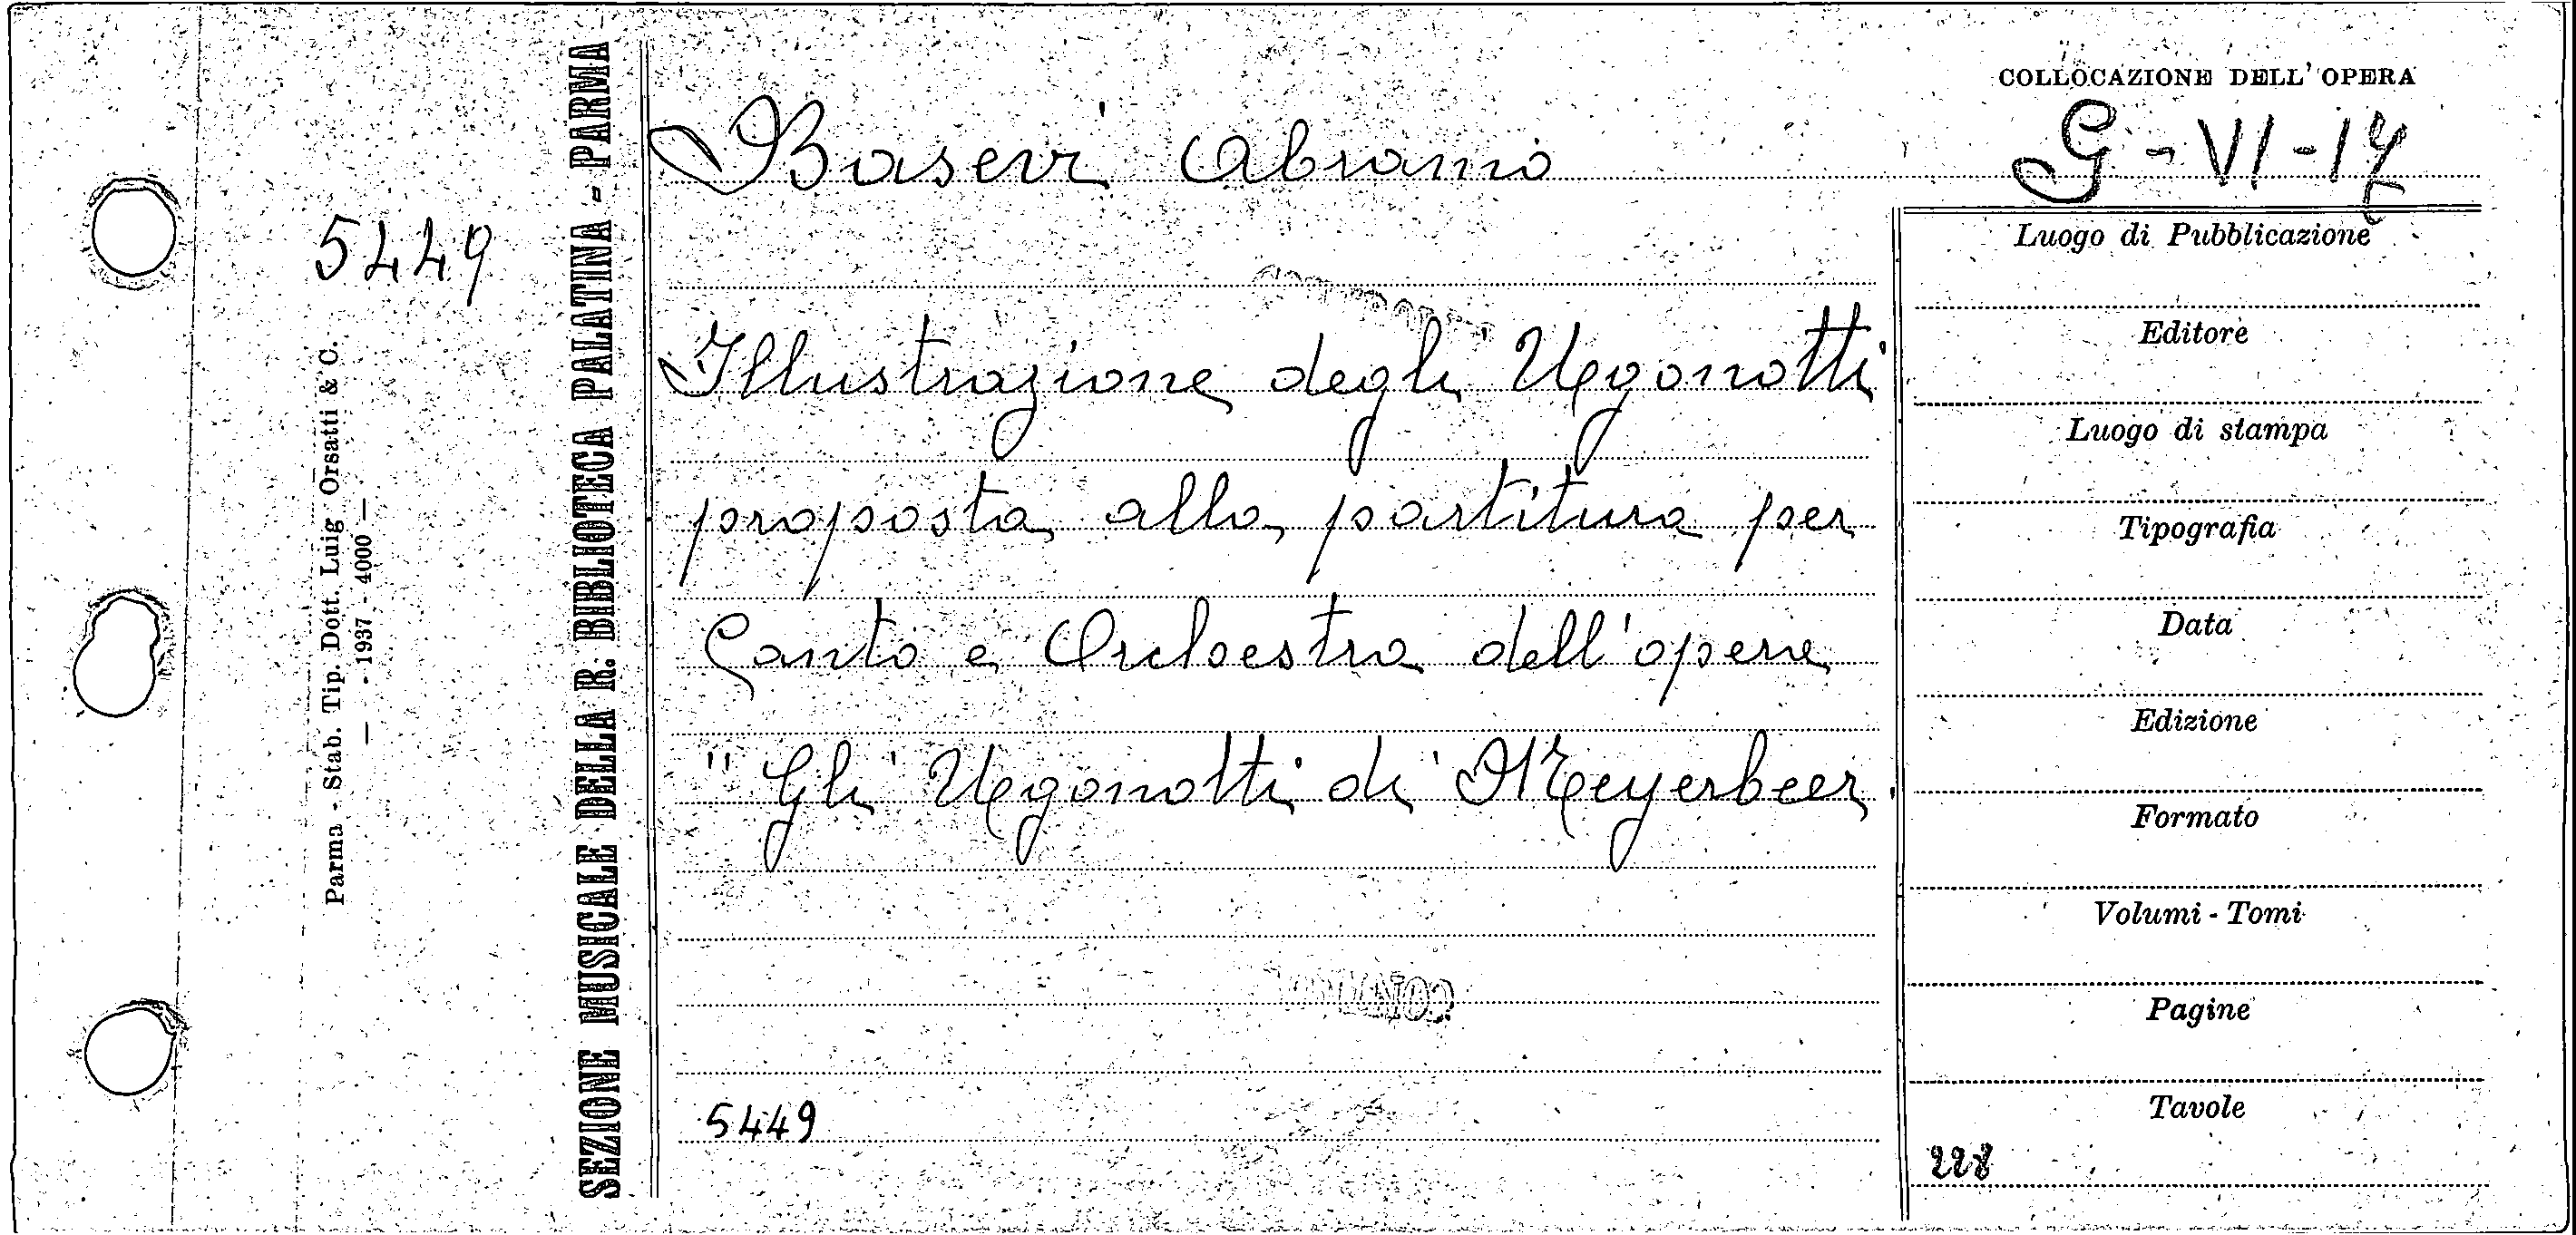 COLLOCAZIONE DELL'OPERA
Basevi Abramo
G - VI - 17
5449
Illustrazione degli Ugonotti
proposta alla partitura per
Canto e Orchestra dell'opera
" Gli Ugonotti di Meyerbeer.
5449
Luogo di Pubblicazione
Editore
Luogo di stampa
Tipografia
Data
Edizione
Formato
Volumi - Tomi
Pagine
Tavole
228
SEZIONE MUSICALE DELLA R. BIBLIOTECA PALATINA - PARMA
Parma - Stab. Tip. Dott. Luig Orsatti & C.
— - 1937 - 4000 —